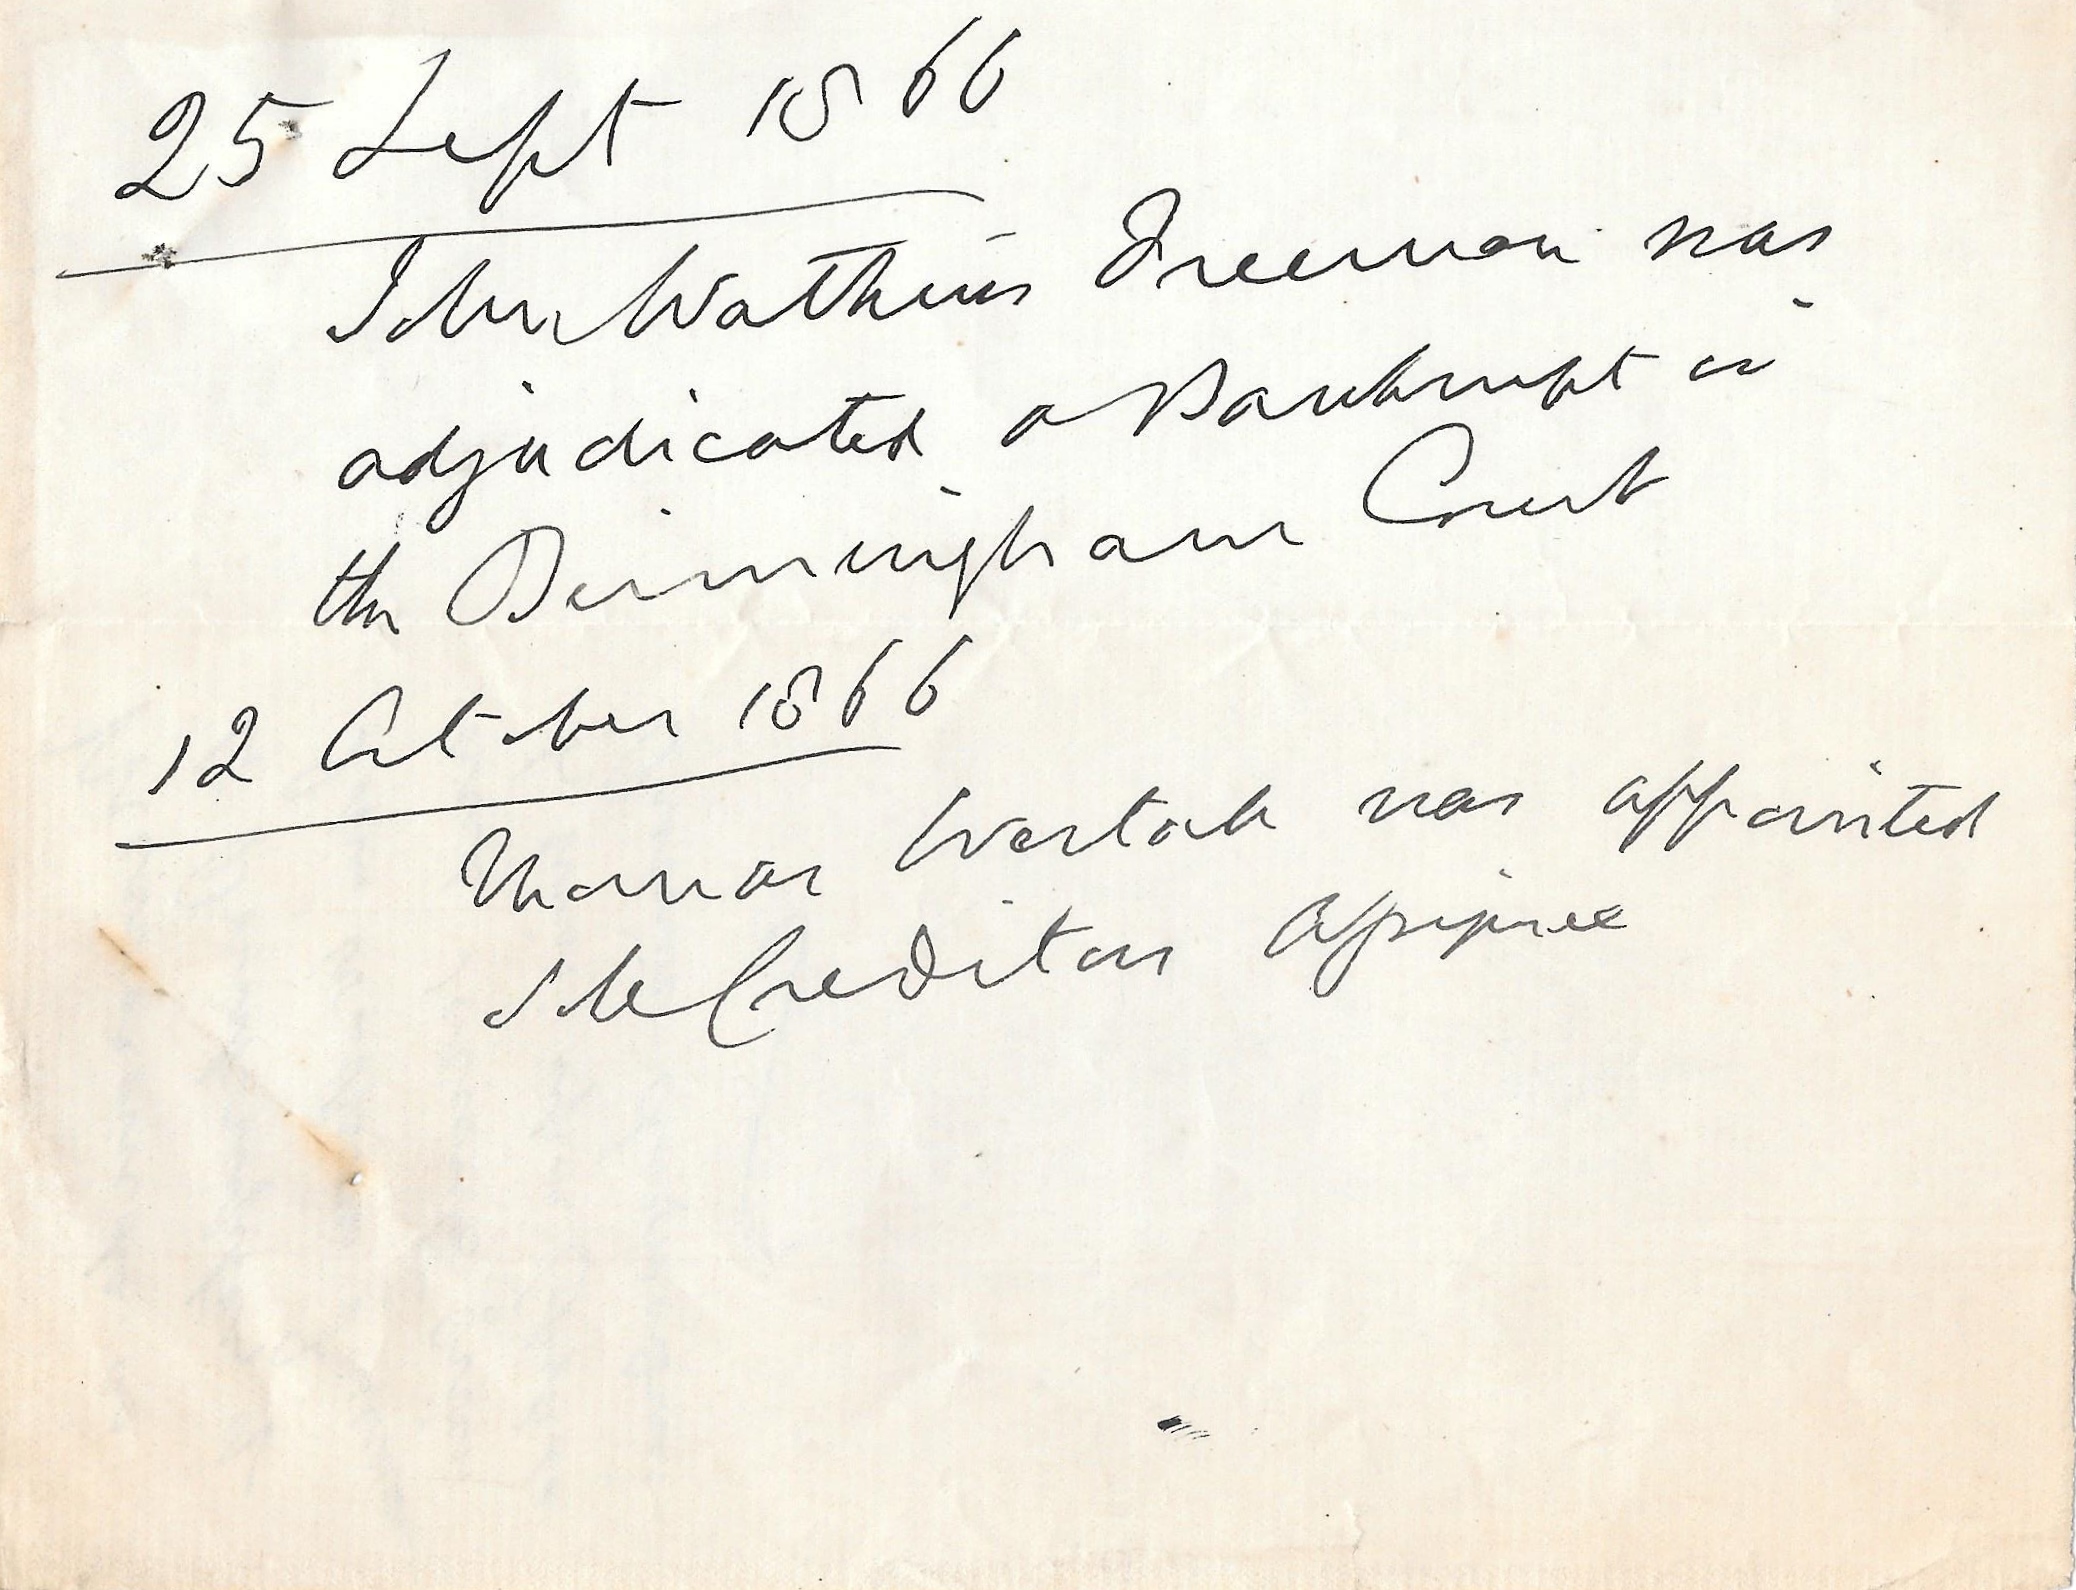 25 Sept 1866
John Watkins Freeman was
adjudicated a Bankrupt in
the Birmingham Court
12 October 1866
Thomas was appointed
sole Creditors Assignee